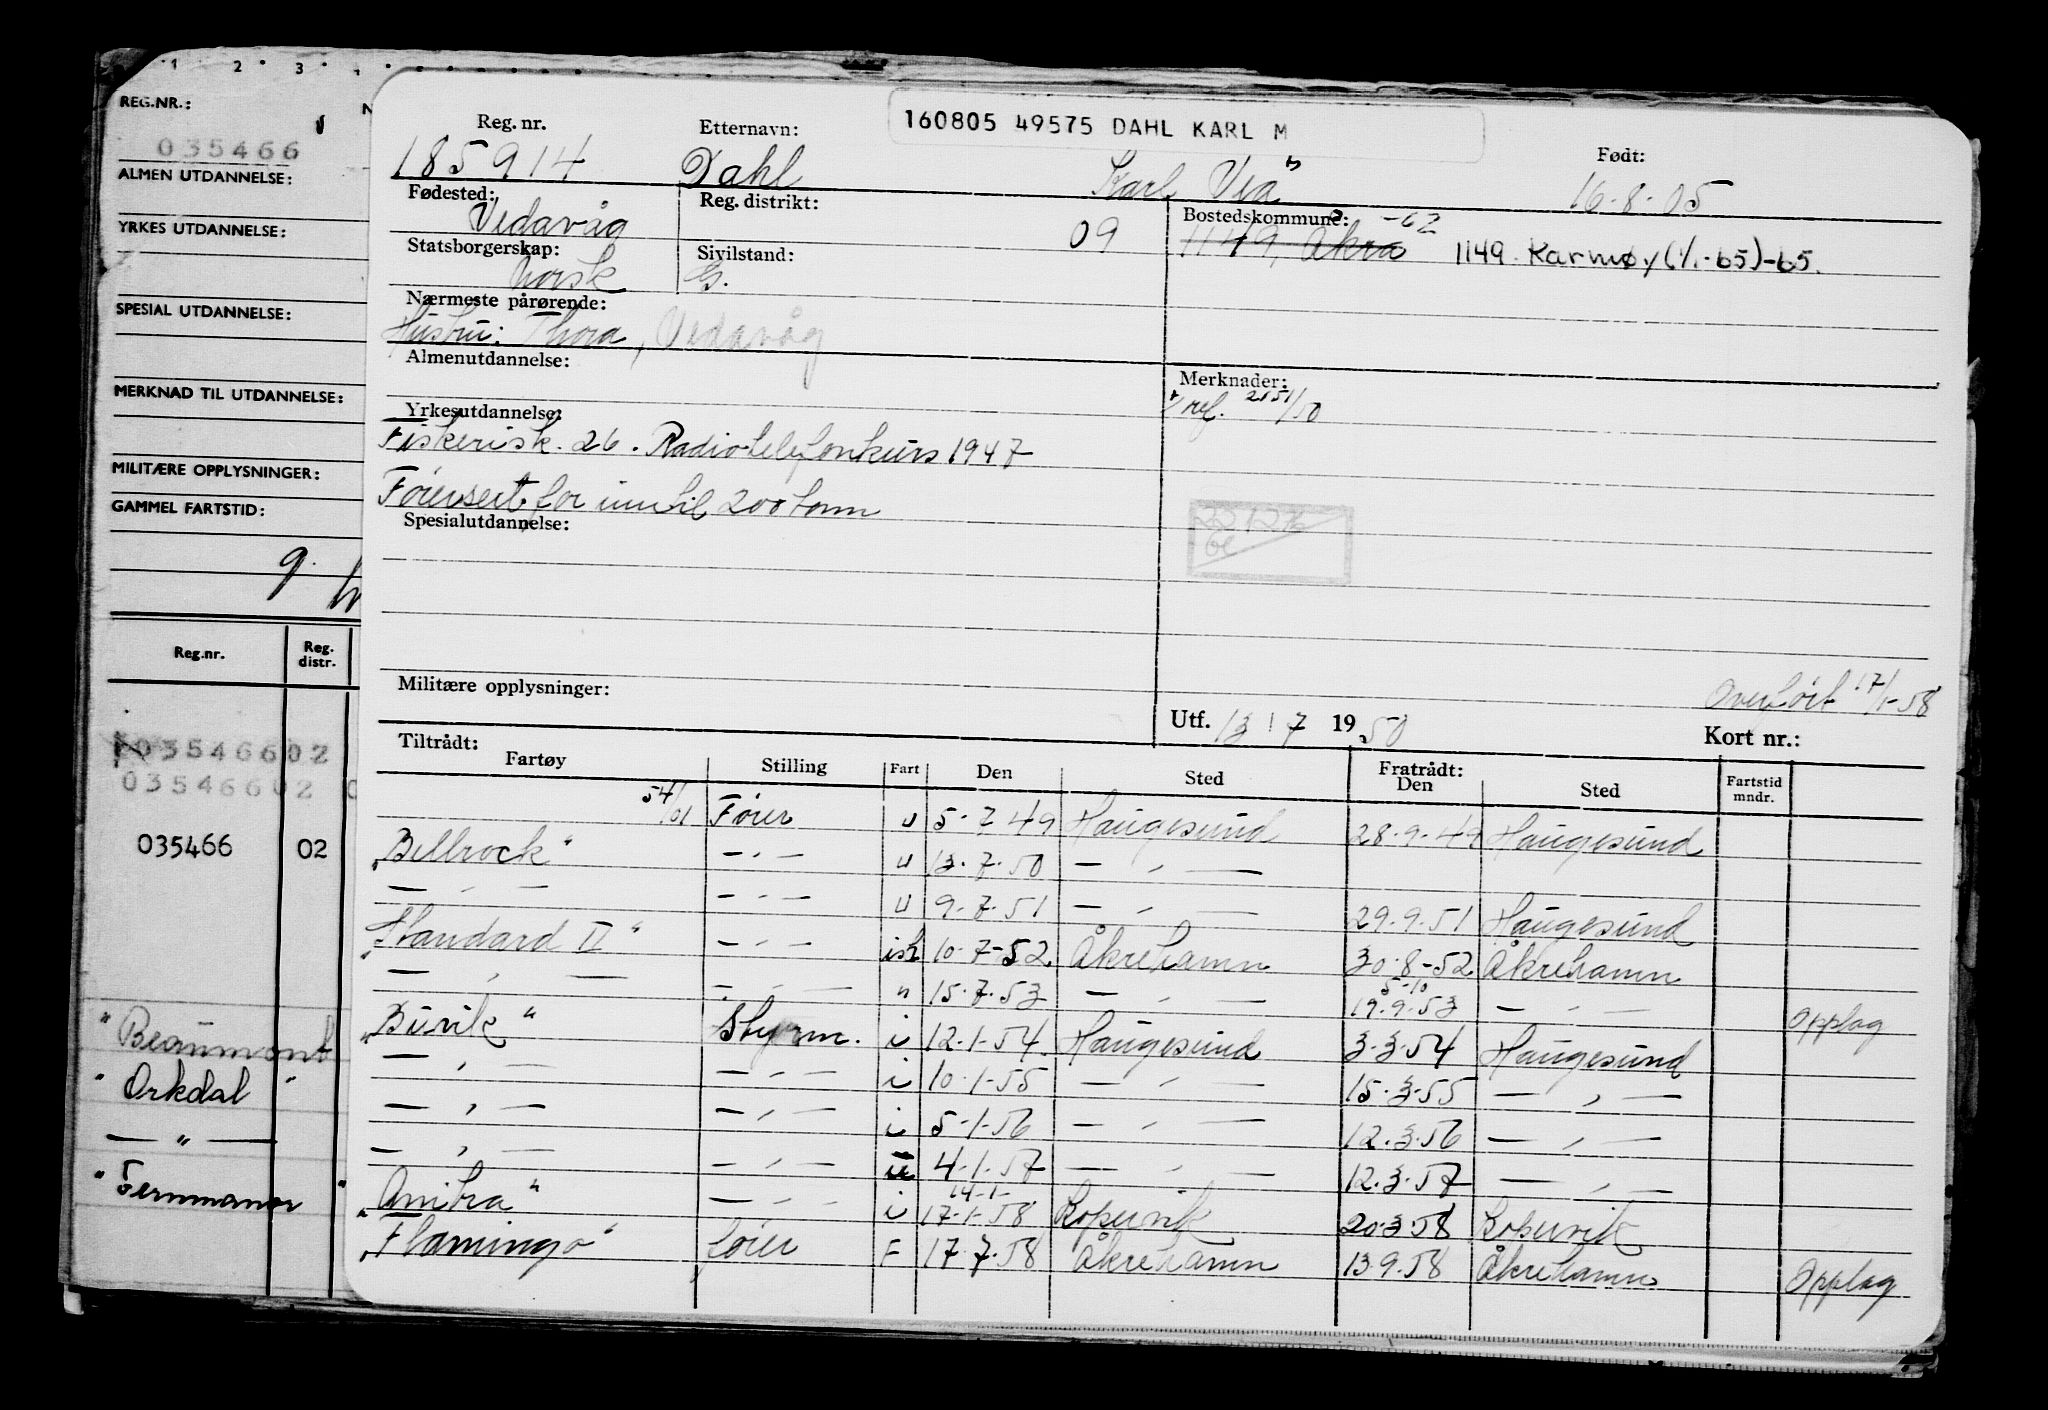 1 2 3
REG.NR.:
035466
ALMEN UTDANNELSE:
YRKES UTDANNELSE:
SPESIAL UTDANNELSE:
MERKNAD TIL UTDANNELSE:
MILITÆRE OPPLYSNINGER:
GAMMEL FARTSTID:
Reg.nr. Reg. distr.
03546602
03546602
035466 02
"Beaumont
"Orkdal"
— " —
"Fernmanor"
160805 49575 DAHL KARL M
Reg. nr. Etternavn: Født:
185914 Dahl Karl Vea 16-8-05
Fødested: Reg. distrikt: Bostedskommune:
Vedavåg 09 1149, Åkra -62 1149 Karmøy (1/1-65)-65.
Statsborgerskap: Sivilstand:
Norsk G.
Nærmeste pårørende:
Hustru: Thora, Vedavåg
Almenutdannelse: Merknader:
ref. 2151/50
Yrkesutdannelse:
Fiskerisk. 26. Radiotelefonkurs 1947
Førersert for inntil 200 tonn
Spesialutdannelse:
Militære opplysninger:
Overført 17/1-58
Utf. 13/7 1950 Kort nr.:
Tiltrådt: Fratrådt:
Fartøy Stilling Fart Den Sted Den Sted Fartstid mndr.
54/01 Fører u 5-7 49 Haugesund 28-9-49 Haugesund
"Bellrock" — " — u 13-7-50 — " —
— " — — " — u 9-7-51 — " — 29.9.51 Haugesund
"Standard II" — " — ish 10-7-52 Åkrehamn 30-8-52 Åkrehamn
— " — — " — " 15.7.53 — " — 5-10 19.9.53 — " — Opplag
"Buvik" Styrm. i 12-1-54 Haugesund 3-3-54 Haugesund
— " — — " — i 10-1-55 — " — 15-3-55 — " —
— " — — " — i 5-1-56 — " — 12.3.56 — " —
— " — — " — i 4-1-57 — " — 12.3.57 — " —
"Anitra" — " — i 14-1- 17-1-58 Kopervik 20-3-58 Kopervik
"Flamingo" fører F 17-7-58 Åkrehamn 13.9.58 Åkrehamn Opplag